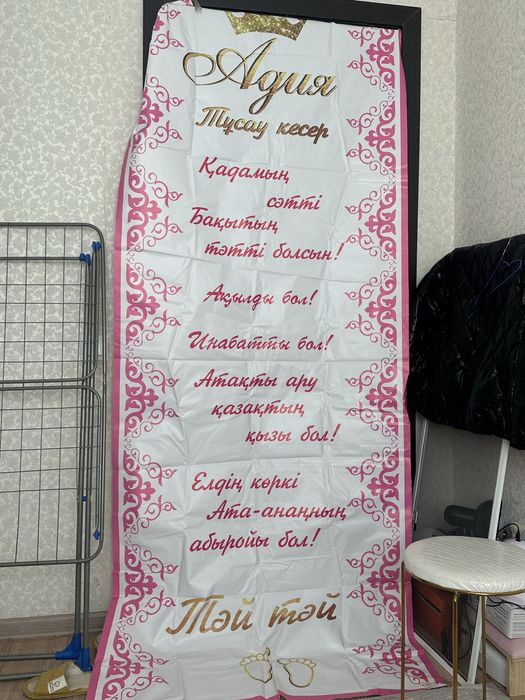 Адия
Тұсау кесер
Қадамың
сәтті
Бақытың
тәтті болсын!
Ақылды бол!
Инабатты бол!
Атақты ару
қазақтың
қызы бол!
Елдің көркі
Ата-анаңның
абыройы бол!
Тәй тәй